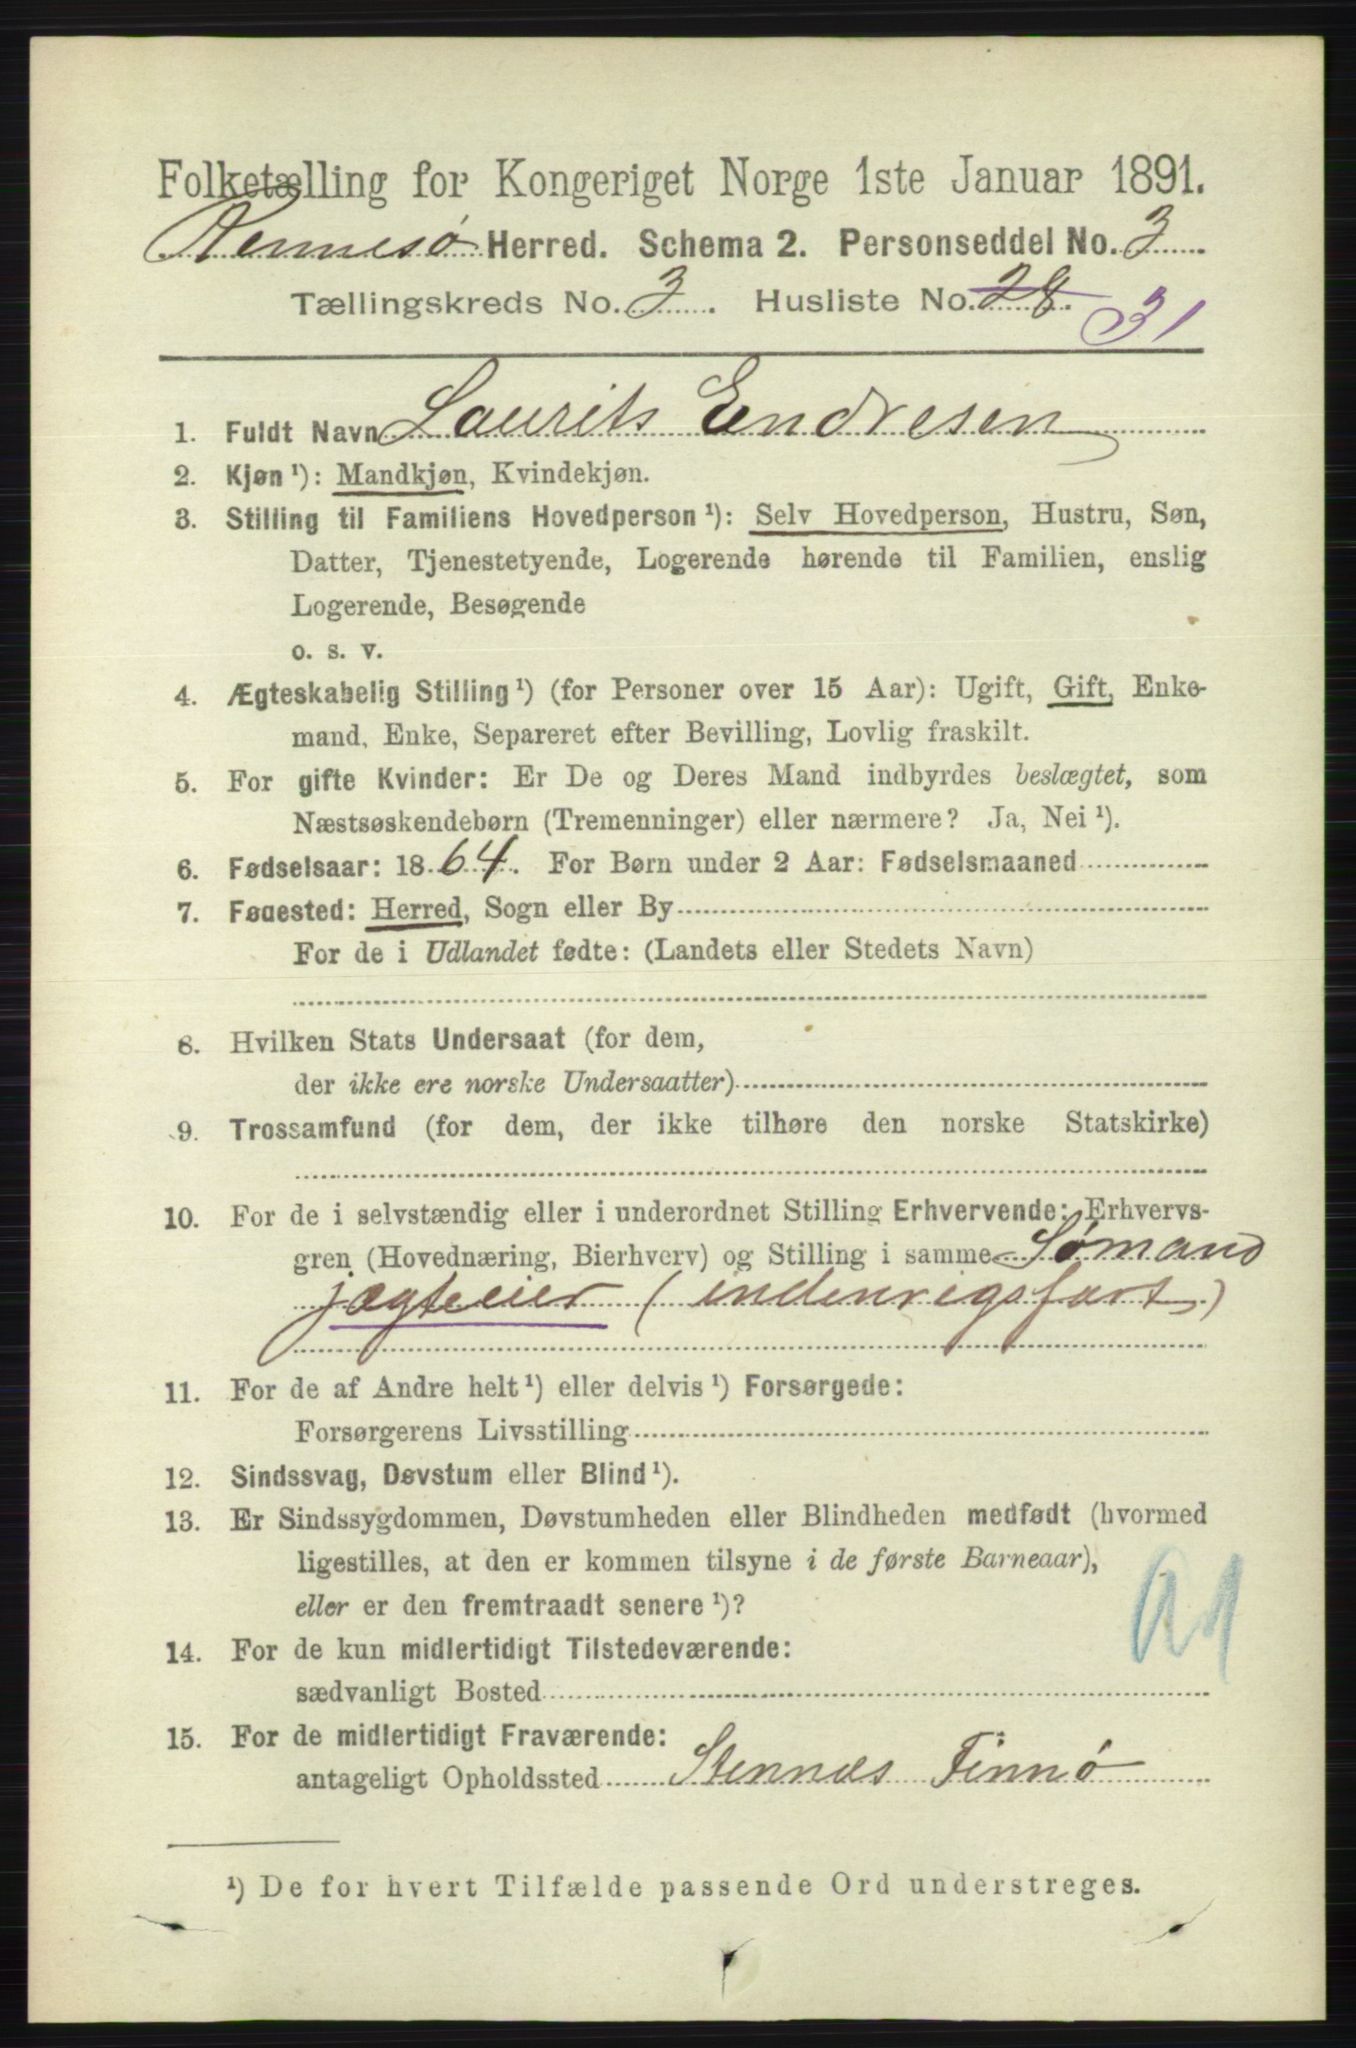 Folketælling for Kongeriget Norge 1ste Januar 1891.
Rennesø Herred. Schema 2. Personseddel No. 3
Tællingskreds No. 3. Husliste No. 28. 31
1. Fuldt Navn Laurits Endresen
2. Kjøn ¹): Mandkjøn, Kvindekjøn.
3. Stilling til Familiens Hovedperson ¹): Selv Hovedperson, Hustru, Søn,
Datter, Tjenestetyende, Logerende hørende til Familien, enslig
Logerende, Besøgende
o. s. v.
4. Ægteskabelig Stilling ¹) (for Personer over 15 Aar): Ugift, Gift, Enke-
mand, Enke, Separeret efter Bevilling, Lovlig fraskilt.
5. For gifte Kvinder: Er De og Deres Mand indbyrdes beslægtet, som
Næstsøskendebørn (Tremenninger) eller nærmere? Ja, Nei ¹).
6. Fødselsaar: 1864. For Børn under 2 Aar: Fødselsmaaned
7. Fødested: Herred, Sogn eller By
For de i Udlandet fødte: (Landets eller Stedets Navn)
8. Hvilken Stats Undersaat (for dem,
der ikke ere norske Undersaatter)
9. Trossamfund (for dem, der ikke tilhøre den norske Statskirke)
10. For de i selvstændig eller i underordnet Stilling Erhvervende: Erhvervs-
gren (Hovednæring, Bierhverv) og Stilling i samme Sømand
jægteeier (indenrigsfart)
11. For de af Andre helt ¹) eller delvis ¹) Forsørgede:
Forsørgerens Livsstilling
12. Sindssvag, Døvstum eller Blind ¹).
13. Er Sindssygdommen, Døvstumheden eller Blindheden medfødt (hvormed
ligestilles, at den er kommen tilsyne i de første Barneaar),
eller er den fremtraadt senere ¹)?
14. For de kun midlertidigt Tilstedeværende:
sædvanligt Bosted
15. For de midlertidigt Fraværende:
antageligt Opholdssted Stennæs Finnø
¹) De for hvert Tilfælde passende Ord understreges.